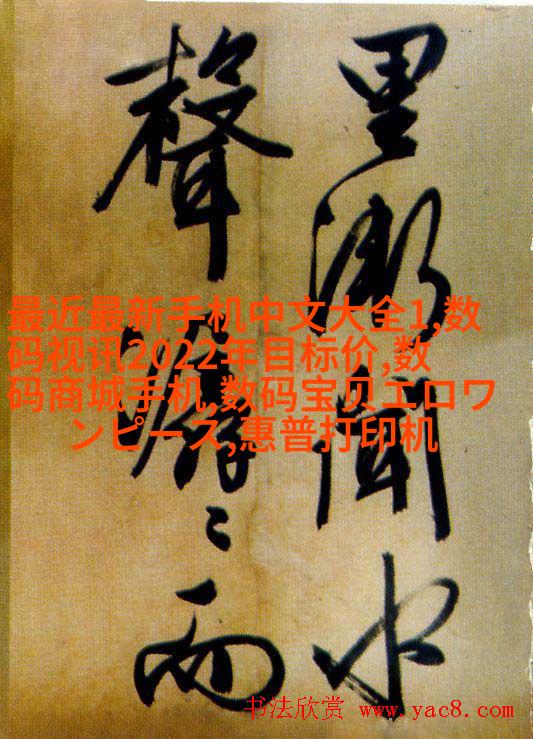 里漸聞水
聲潺〻而
最近最新手机中文大全1,数
码视讯2022年目标价,数
码商城手机,数码宝贝エロワ
ンピース,惠普打印机
书法欣赏 www.yac8.com